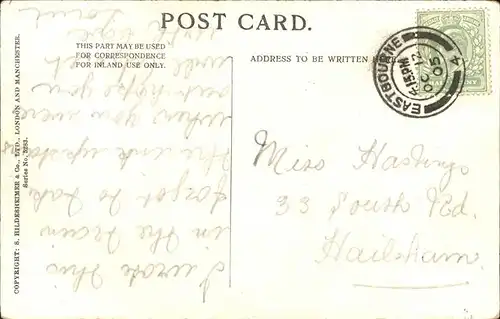 POST CARD.
THIS PART MAY BE USED
FOR CORRESPONDENCE
FOR INLAND USE ONLY.
ADDRESS TO BE WRITTEN HERE
COPYRIGHT: S. HILDESHEIMER & Co., LTD. LONDON AND MANCHESTER.
Series No. 5253.
EASTBOURNE
4.15PM
OC 12
05
4
Miss Hastings
33 South Rd.
Hailsham.
I wrote this
in the train
forgot to take
the ink upstairs
when you were
hope you